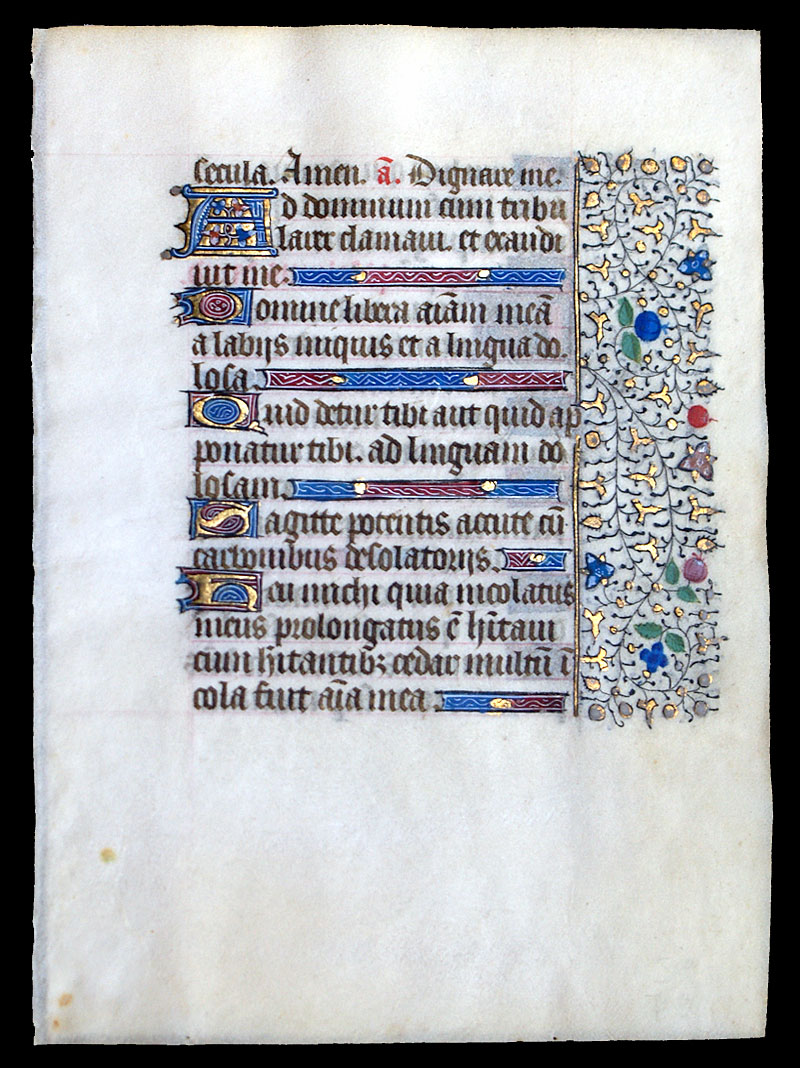 secula. Amen. ā. Dignare me.
Ad dominum cum tribu
larer clamaui. et exaudi
uit me.
Domine libera aīam meā
a labijs iniquis et a lingua do.
losa.
Quid detur tibi aut quid ap
ponatur tibi. ad linguam do
losam.
Sagitte potentis accute cū
carbonibus desolatorijs.
Heu michi quia incolatus
meus prolongatus ē hītaui
cum hītantibꝫ cedar multū ī
cola fuit aīa mea